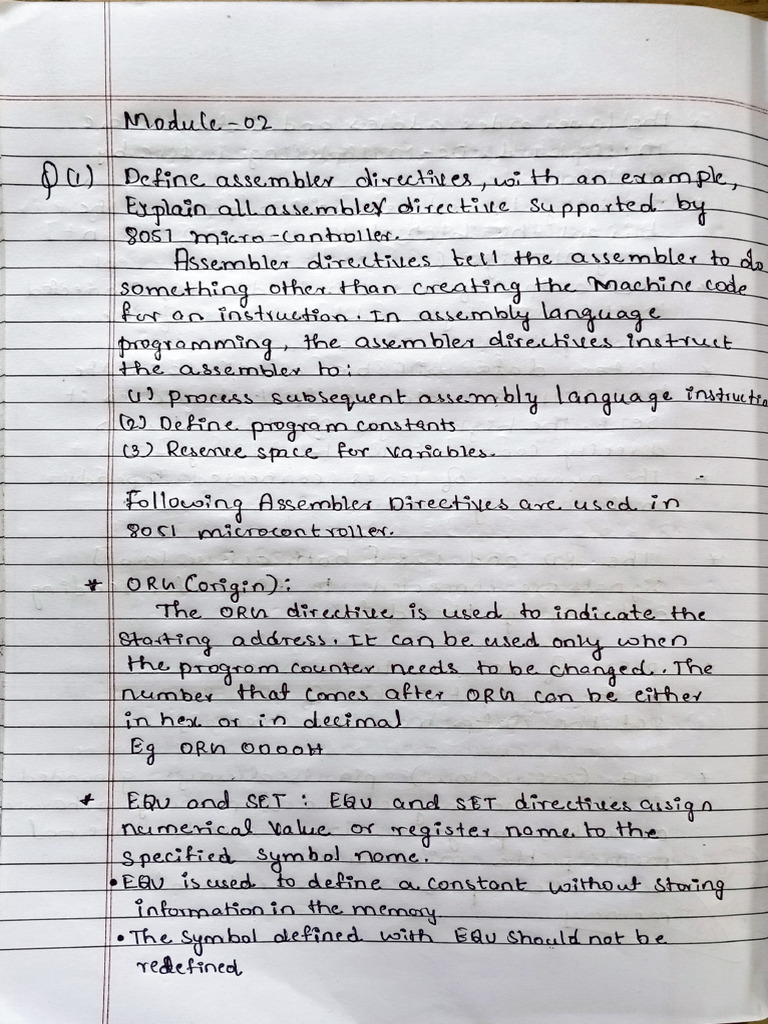 Module-02
Q(1) Define assembler directives, with an example,
Explain all assembler directive supported by
8051 micro-controller.
Assembler directives tell the assembler to do
something other than creating the Machine code
for an instruction. In assembly language
programming, the assembler directives instruct
the assembler to:
(1) Process subsequent assembly language instructio
(2) Define program constants
(3) Reserve space for variables.
Following Assembler Directives are used in
8051 microcontroller.
* ORG (origin):
The ORG directive is used to indicate the
starting address. It can be used only when
the program counter needs to be changed. The
number that comes after ORG can be either
in hex or in decimal
Eg ORG 0000H
* EQU and SET: EQU and SET directives assign
numerical value or register name to the
specified symbol name.
• EQU is used to define a constant without storing
information in the memory.
• The symbol defined with EQU should not be
redefined